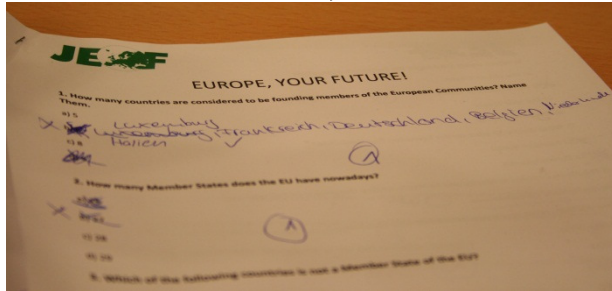 JEF
EUROPE, YOUR FUTURE!
1. How many countries are considered to be founding members of the European Communities? Name
Them.
a) 5
Luxemburg
Luxemburg, Frankreich, Deutschland, Belgien,
c) 8
Italien
1
2. How many Member States does the EU have nowadays?
1
c) 28
3. Which of the following countries is not a Member State of the EU?